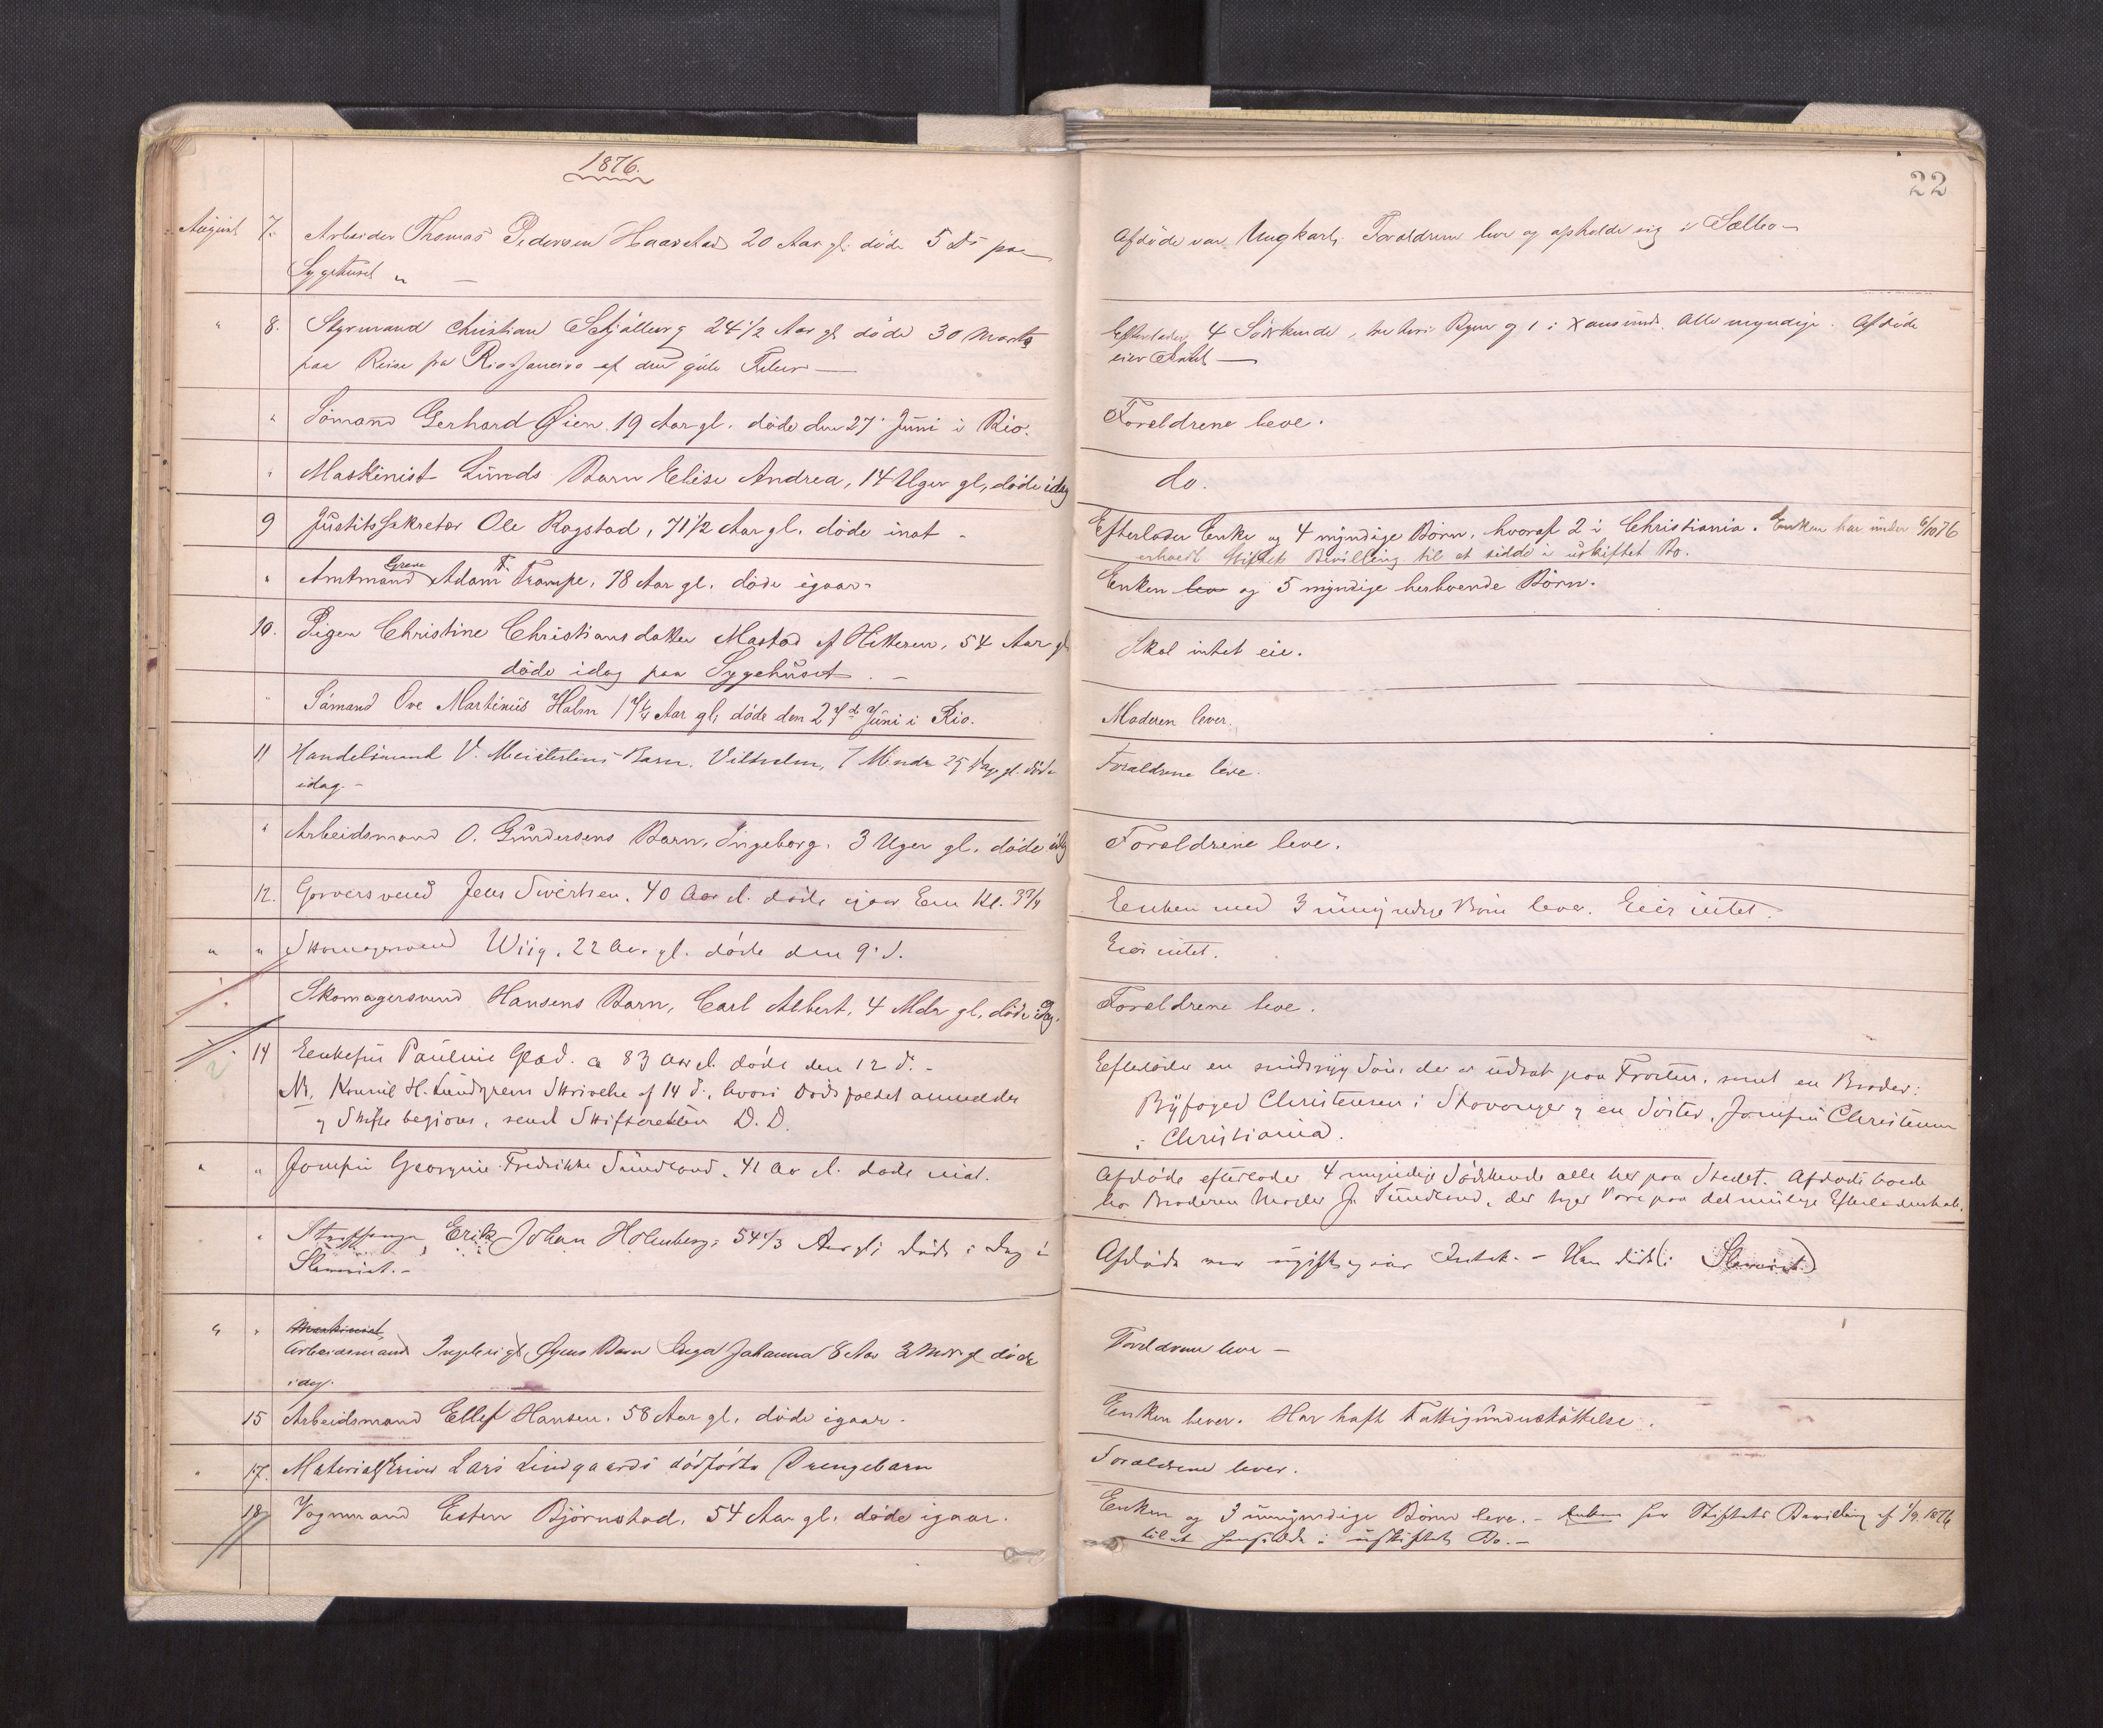 1876.
22
August 7. Arbeider Thomas Pedersen Haarstad 20 Aar gl. døde 5 ds paa
Sygehuset
Afdøde var Ungkarl. Forældrene leve og opholde sig i Sælbo
" 8. Styrmand Christian Schjølberg 24 1/2 Aar gl døde 30 Marts
paa Reise fra Rio Janeiro af den gule Feber
Efterlader 4 Södskende, tre her i Byen og 1 i Xansund. Alle myndige. Afdøde
eier Intet
" Sømand Gerhard Øien, 19 Aar gl. døde den 27' Juni i Rio.
Forældrene leve.
" Maskinist Lunds Barn Elise Andrea, 14 Uger gl, døde idag
do.
9 Justitssekretær Ole Rogstad, 71 1/2 Aar gl. døde inat
Efterlader Enke og 4 myndige Børn, hvoraf 2 i Christiania. Enken har under 6/10 76
erholdt Stiftets Bevilling til at sidde i uskiftet Bo.
" Amtmand Greve Adam F. Trampe, 78 Aar gl. døde igaar
Enken lev og 5 myndige herboende Börn.
10. Pigen Christine Christiansdatter Mastad af Hitteren, 54 Aar gl
döde idag paa Sygehuset.
Skal intet eie.
" Sömand Ove Martinius Holm 17 1/4 Aar gl, døde den 27d Juni i Rio.
Moderen lever.
11 Handelsmand V. Barn, Vilhelm, 7 Mindr 25 Dag gl. döde
idag.
Forældrene leve.
" Arbeidsmand O. Gundersens Barn, Ingeborg, 3 Uger gl. døde idag
Forældrene leve.
12. Garversvend Jens Sivertsen, 40 Aar gl. döde igaar Em Kl. 3 3/4
Enken med 3 umyndige Börn lever. Eier intet.
" " Skomagersvend Wiig, 22 Aar gl. döde den 9' d.
Eier intet.
" Skomagersvend Hansens Barn, Carl Albert, 4 Mdr gl, døde idag.
Forældrene leve.
" 14 Enkefru Pauline Glad. a 83 Aar gl. döde den 12 d.
Efterlader en sindssyg Sön, der er udsat paa Frosten, samt en Broder:
N. Konsul H. Lundgrens Skrivelse af 14 d., hvori Dödsfaldet anmeldes
Byfoged Christensen i Stavanger og en Söster, Jomfru Christensen
og Skifte begjæres, sendt Skifteretten D. D.
i Christiania.
" " Jomfru Georgine Fredrikke Sundland, 41 Aar gl. døde inat.
Afdöde efterlader 4 myndige Södskende alle her paa Stedet. Afdöde boede
hos Broderen Mægler J. Sundland, der tager Vare paa det mulige Efterladenskab.
" Straffange Erik Johan Holmberg, 54 1/3 Aar gl; döde i Dag i
Slaveriet.
Afdöde var ugift og eier Intet. Han döde (i Slaveriet)
" " Maskinist,
Arbeidsmand Ingebrigt Öyens Barn Inga Johanna 8 Aar 3 Mdr gl døde
idag.
Forældrene leve
15 Arbeidsmand Ellef Hansen, 58 Aar gl, døde igaar.
Enken lever. Har havt Fattigunderstöttelse.
" 17. Materialskriver Lars Lindgaards dödfödte Drengebarn
Forældrene lever.
18 Vognmand Esten Björnstad, 54 Aar gl. døde igaar.
Enken og 3 umyndige Börn leve. Enken har Stiftets Bevilling af 1/9 1876
til at hensidde i uskiftet Bo.